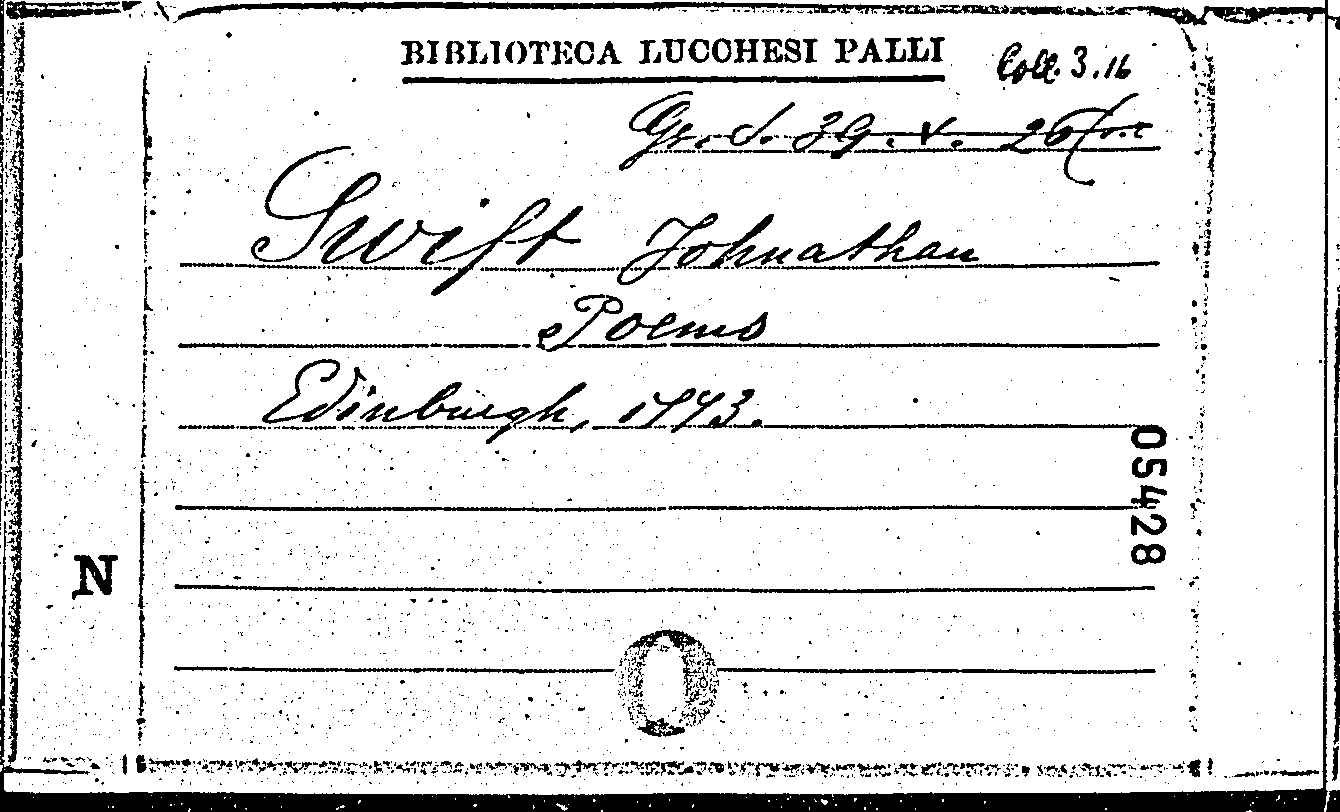 BIBLIOTECA LUCCHESI PALLI
Coll. 3.16
Gr. S. 39. V. 26
Swift Johnathan
Poems
Edinburgh, 1773.
05428
N